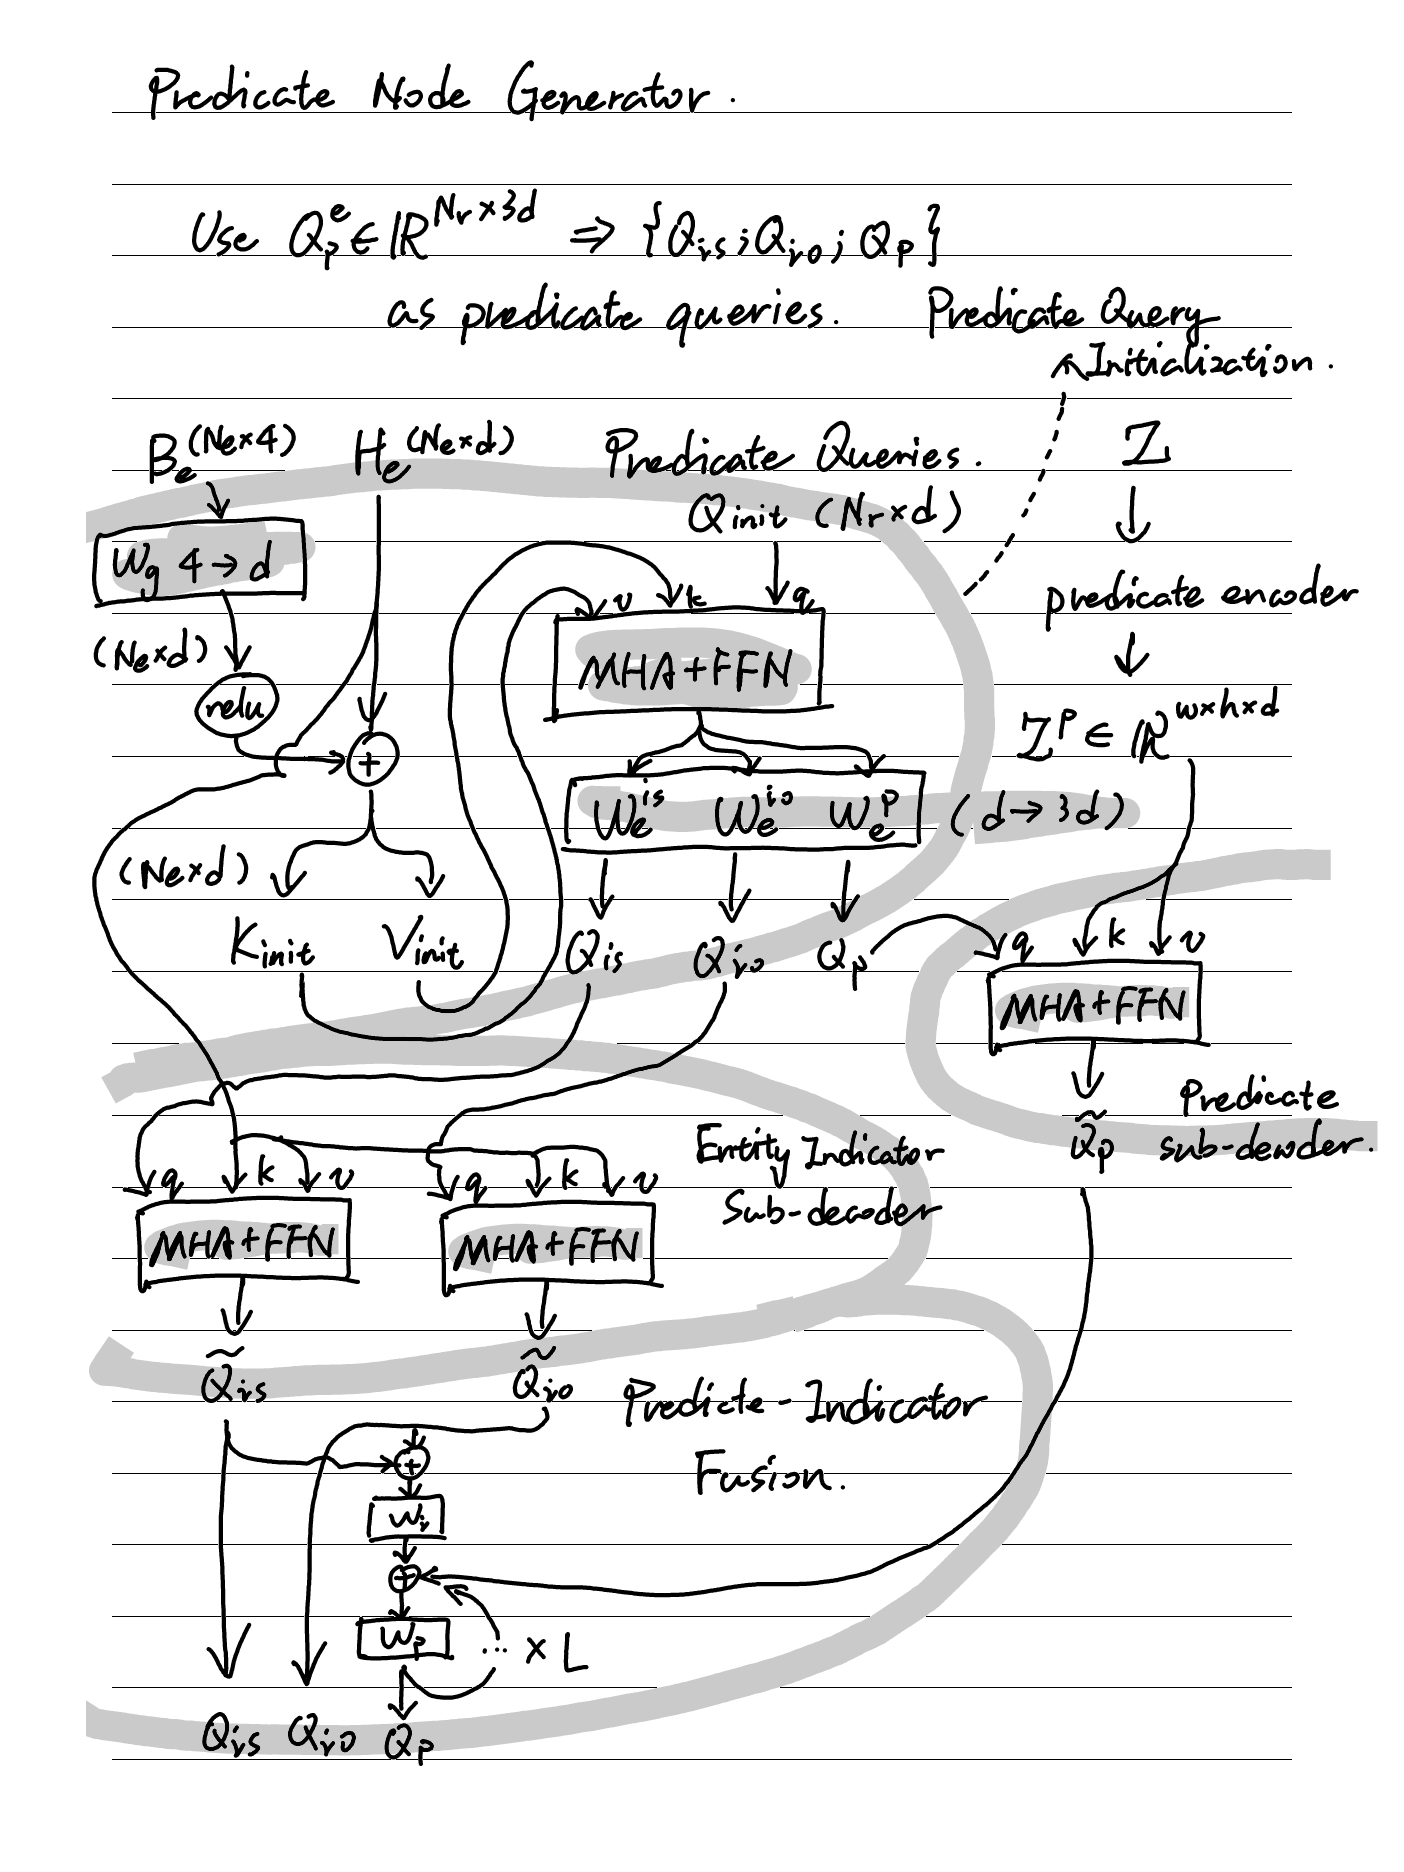 Predicate Node Generator.
Use Q_p^e ∈ ℝ^{Nr×3d} ⇒ {Q_is; Q_io; Q_p}
as predicate queries.
Predicate Query
Initialization.
B_e (Ne×4)
H_e (Ne×d)
Predicate Queries.
Z
Q_init (Nr×d)
W_g 4→d
v k q
predicate encoder
(Ne×d)
MHA+FFN
relu
Z^p ∈ ℝ^{w×h×d}
+
W_e^is W_e^io W_e^p (d→3d)
(Ne×d)
K_init V_init Q_is Q_io Q_p
q k v
MHA+FFN
Predicate
sub-decoder.
Q̃_p
Entity Indicator
Sub-decoder
q k v
q k v
MHA+FFN
MHA+FFN
Q̃_is
Q̃_io
Predicte-Indicator
Fusion.
+
W_i
+
W_p
... × L
Q_is Q_io Q_p